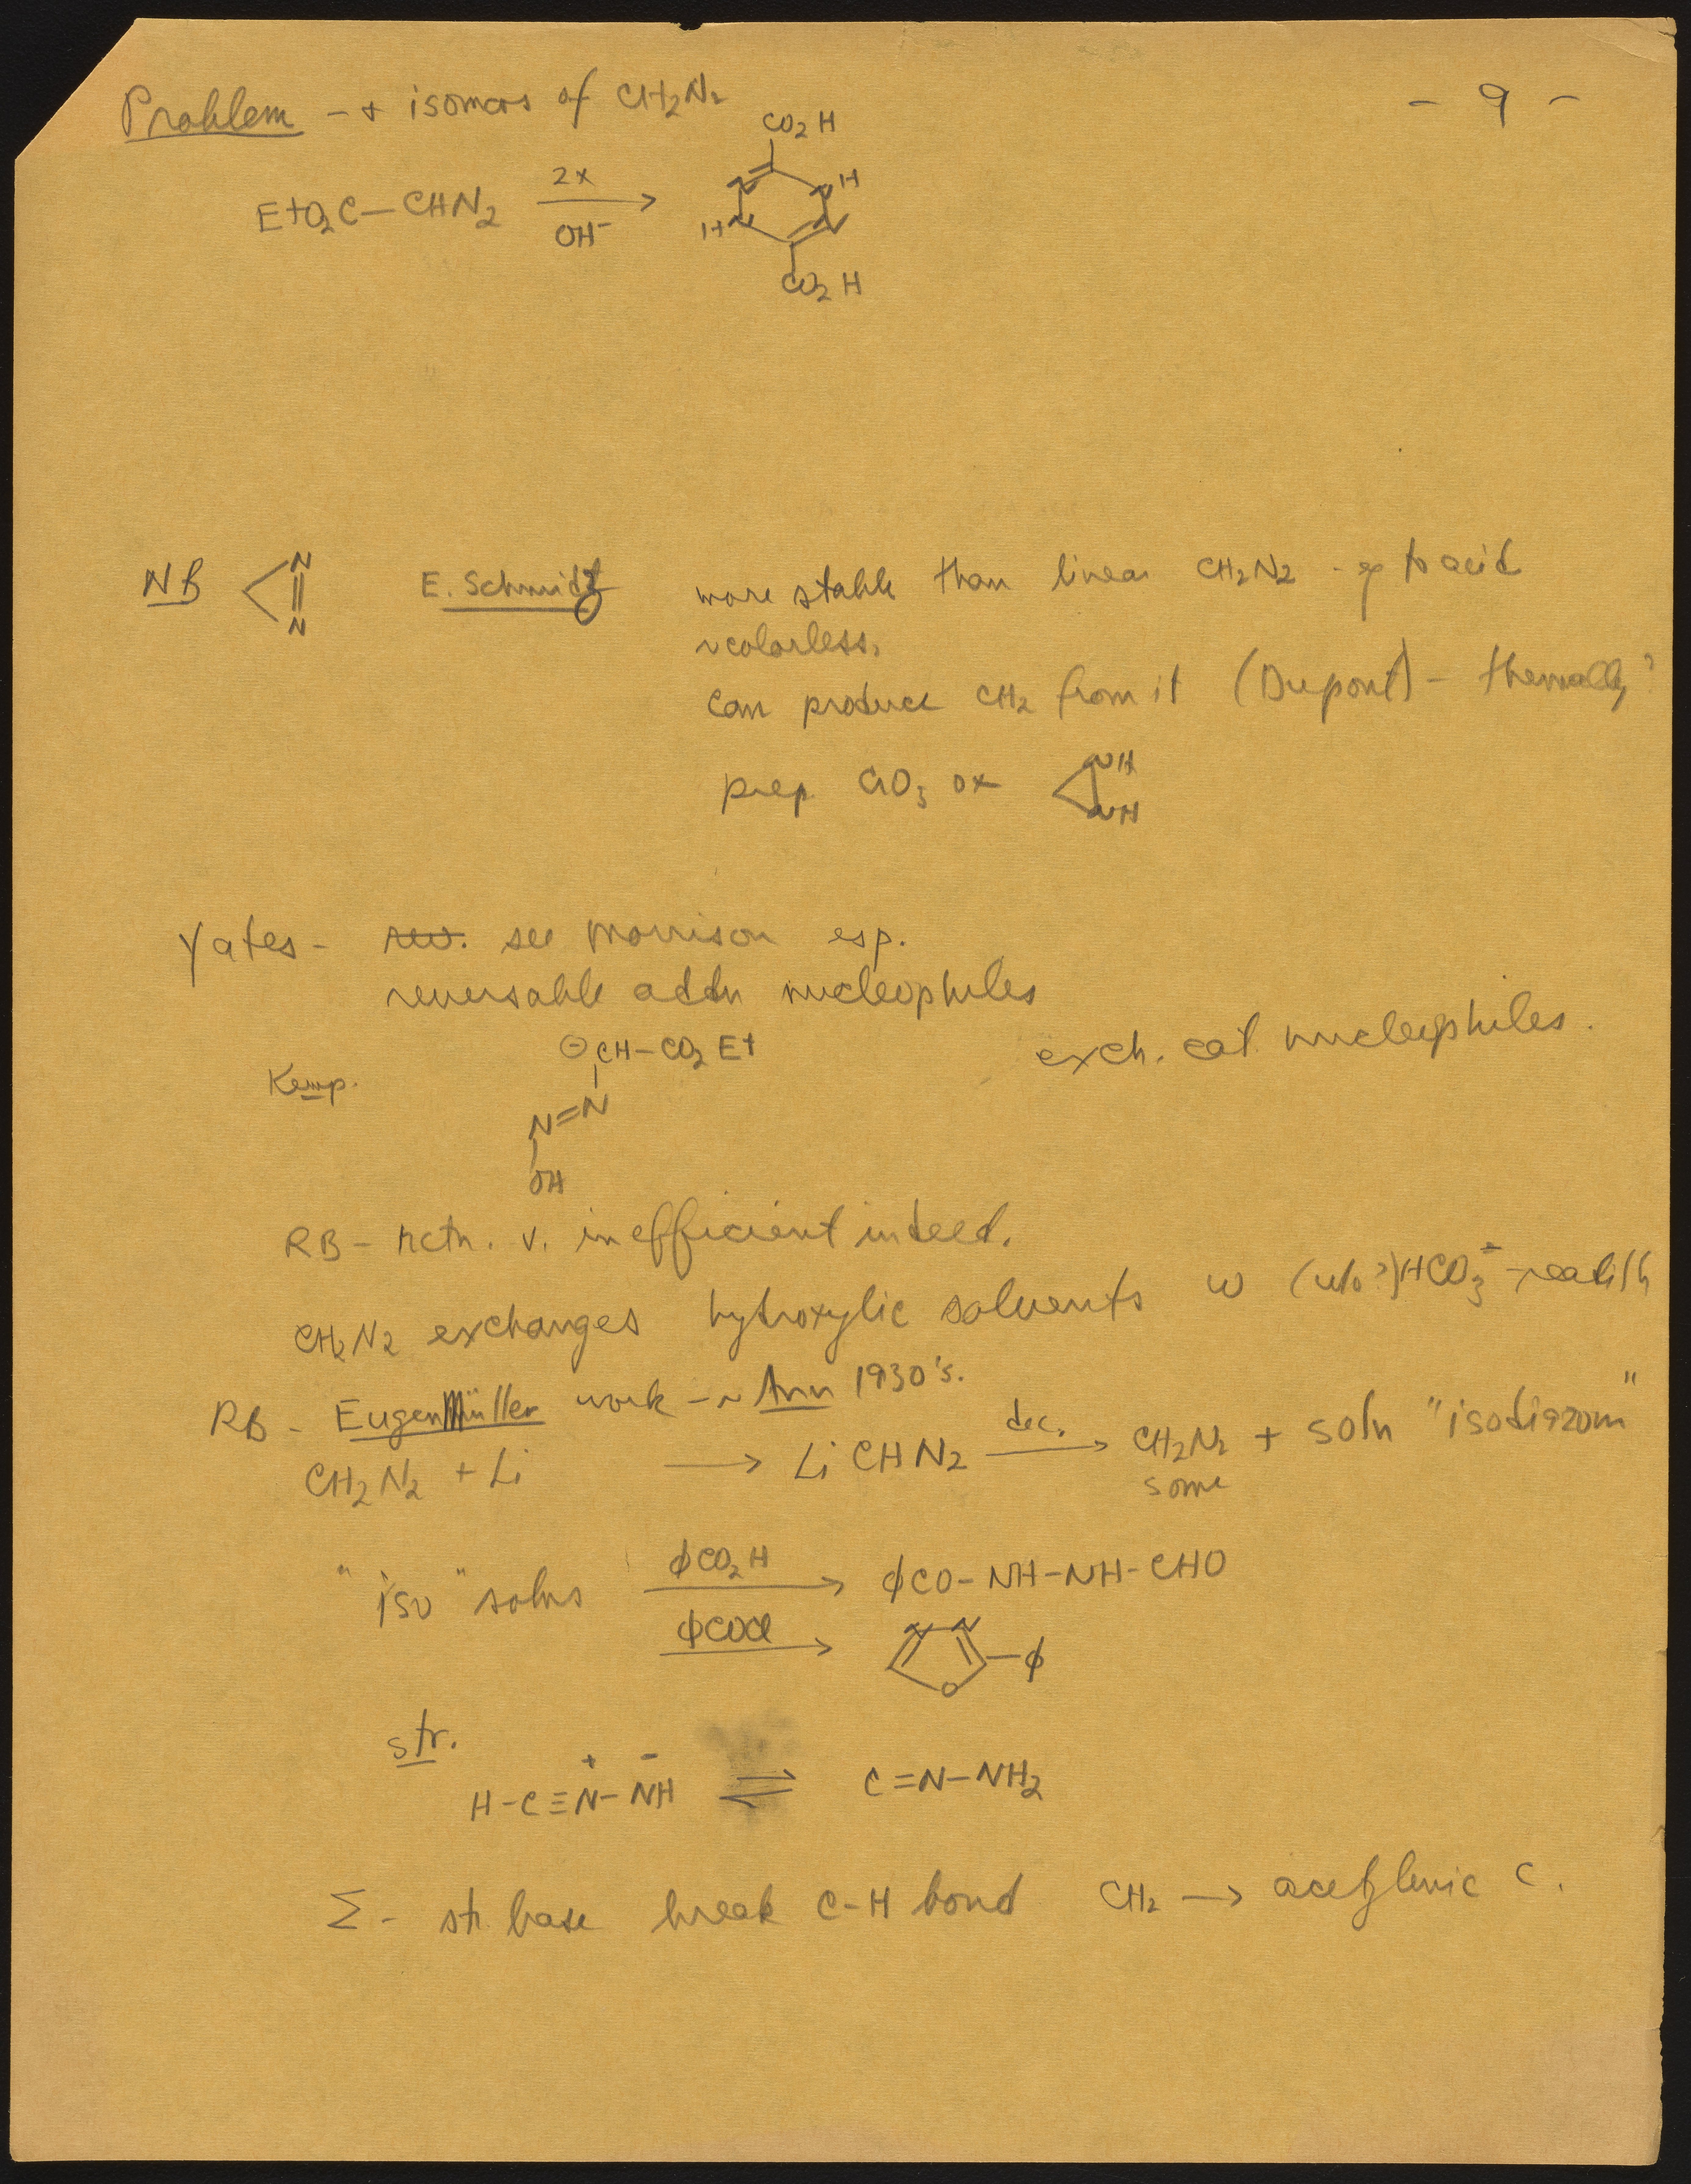 Problem - + isomers of CH2N2
- 9 -
CO2H
EtO2C-CHN2 2x OH- →
N NH
HN N
CO2H
NB N=N E. Schmidt more stable than linear CH2N2 - to acid
~colorless,
Can produce CH2 from it (Dupont) - thermally?
prep CrO3 ox NH NH
Yates - rev. see Morrison esp.
reversable addn nucleophiles
exch. cat. nucleophiles.
⊖CH-CO2Et
Kemp.
N=N
OH
RB - rctn. v. inefficient indeed.
CH2N2 exchanges hydroxylic solvents w (w/o?) HCO3-
RB - Eugen Müller work - ~ Ann 1930's.
CH2N2 + Li → LiCHN2 dec. → CH2N2 + soln "isodiazom"
some
"iso" solns ϕCO2H → ϕCO-NH-NH-CHO
ϕCOCl → N N O -ϕ
str.
H-C≡N+-NH- ⇌ C=N-NH2
Σ - st. base break C-H bond CH2 → acetylenic C.